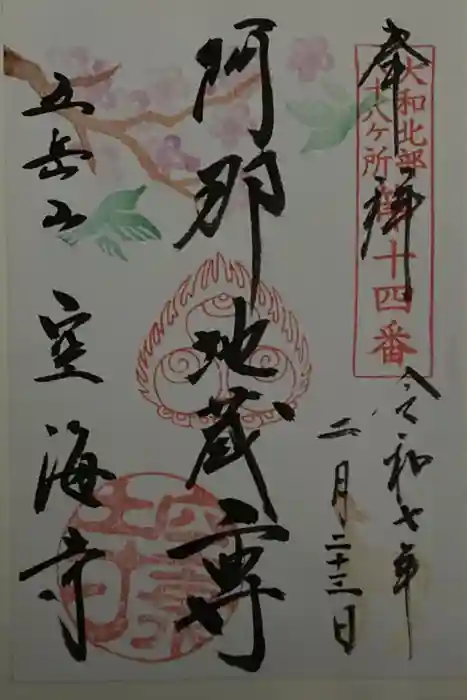 奉拝
大和北部
十八ヶ所
第十四番
令和七年
二月二十三日
阿那地蔵尊
五岳山 空海寺